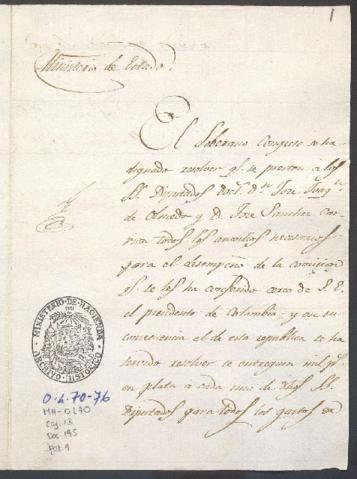 1
Ministerio de Estado.
El Soberano Congreso se ha
dignado resolver qe. se presten á los
SS. Diputados Doct. Dn. Jose Joaqn.
de Olmedo y D. Jose Sanchez Car-
rion todos los auxilios necesarios
para el desempeño de la comision
qe. se les ha conferido cerca de S. E.
el presidente de Colombia; y en su
consecuencia el de esta republica se ha
servido resolver se entreguen mil ps.
en plata á cada uno de dhos SS.
Diputados para todos los gastos de
MINISTERIO·DE·HACIENDA
ARCHIVO·HISTORICO
O.L.70-76
MH-OL70
Caj. 13
Doc. 195
Fol. 1